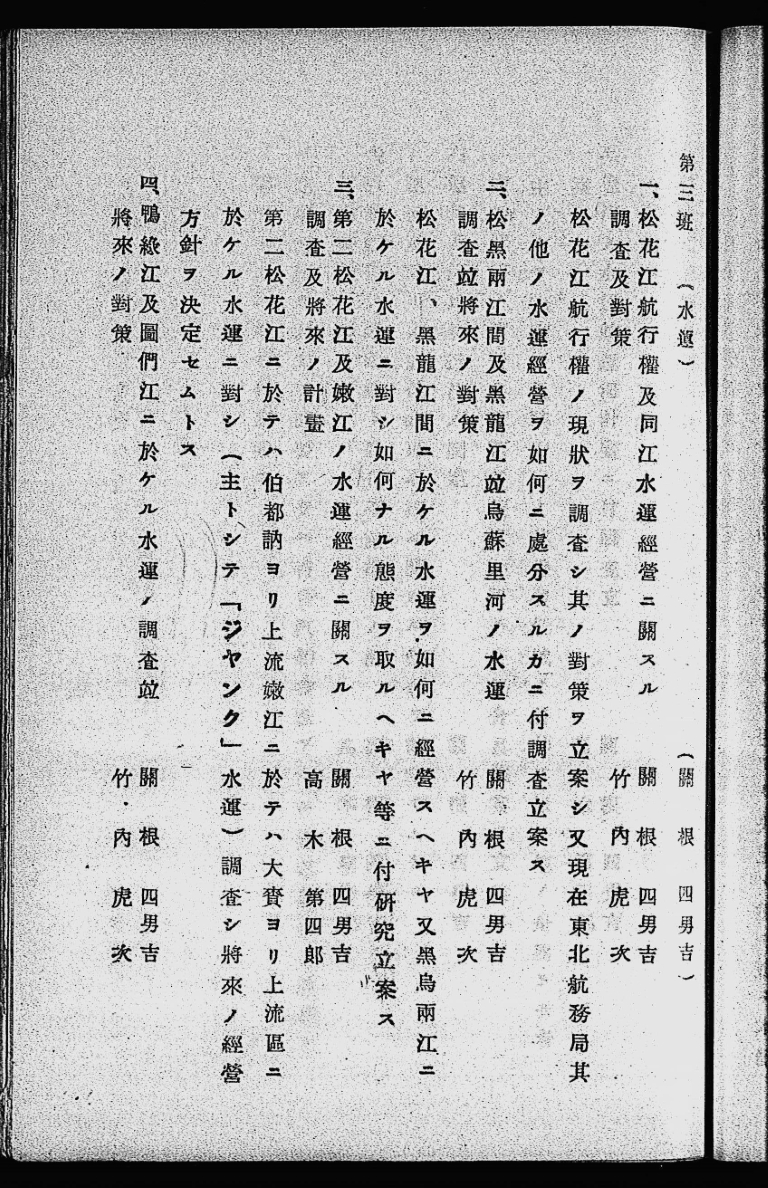 第三班　（水運）　（關根四男吉）
一、松花江航行權及同江水運經營ニ關スル　關根四男吉
調査及對策　竹內虎次
松花江航行權ノ現狀ヲ調査シ其ノ對策ヲ立案シ又現在東北航務局其
ノ他ノ水運經營ヲ如何ニ處分スルカニ付調査立案ス
二、松黑兩江間及黑龍江竝烏蘇里河ノ水運　關根四男吉
調査竝將來ノ對策　竹內虎次
松花江、黑龍江間ニ於ケル水運ヲ如何ニ經營スヘキヤ又黑烏兩江ニ
於ケル水運ニ對シ如何ナル態度ヲ取ルヘキヤ等ニ付研究立案ス
三、第二松花江及嫩江ノ水運經營ニ關スル　關根四男吉
調査及將來ノ計畫　高木第四郎
第二松花江ニ於テハ伯都訥ヨリ上流嫩江ニ於テハ大賚ヨリ上流區ニ
於ケル水運ニ對シ（主トシテ「ジヤンク」水運）調査シ將來ノ經營
方針ヲ決定セムトス
四、鴨綠江及圖們江ニ於ケル水運ノ調査竝　關根四男吉
將來ノ對策　竹內虎次